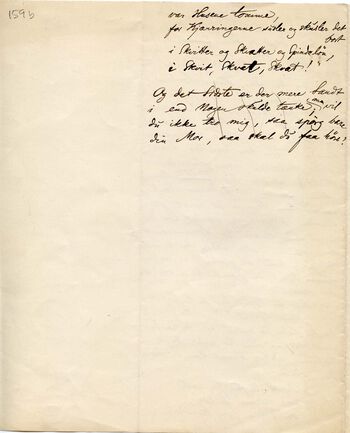 159b
var Husene tomme,
for Kjærringerne sidler og skusler det
bort
i Skvitker og Skvaker og Spindelön,
i Skvit, Skvat, Skvat!"
Og det sidste er der mere Sandt
i end Nogen skulde tænke; vil
man
du ikke tro mig, saa spörg bare
din Mor, saa skal du faa höre!